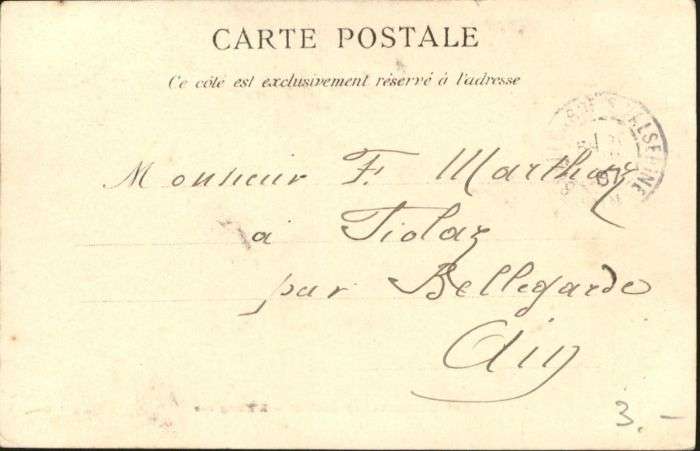 CARTE POSTALE
Ce côté est exclusivement réservé à l'adresse
VALSERINE
Monsieur F. Marthoz
à Tiolaz
par Bellegarde
Ain
3.-